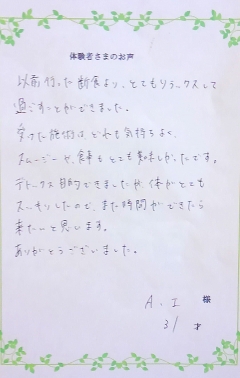 体験者さまのお声
以前行った断食より、とてもリラックスして
過ごすことができました。
受けた施術は、どれも気持ちよく、
スムージーや、食事もとても美味しかったです。
デトックス目的できましたが、体がとても
スッキリしたので、また時間ができたら
来たいと思います。
ありがとうございました。
A.I 様
31 才